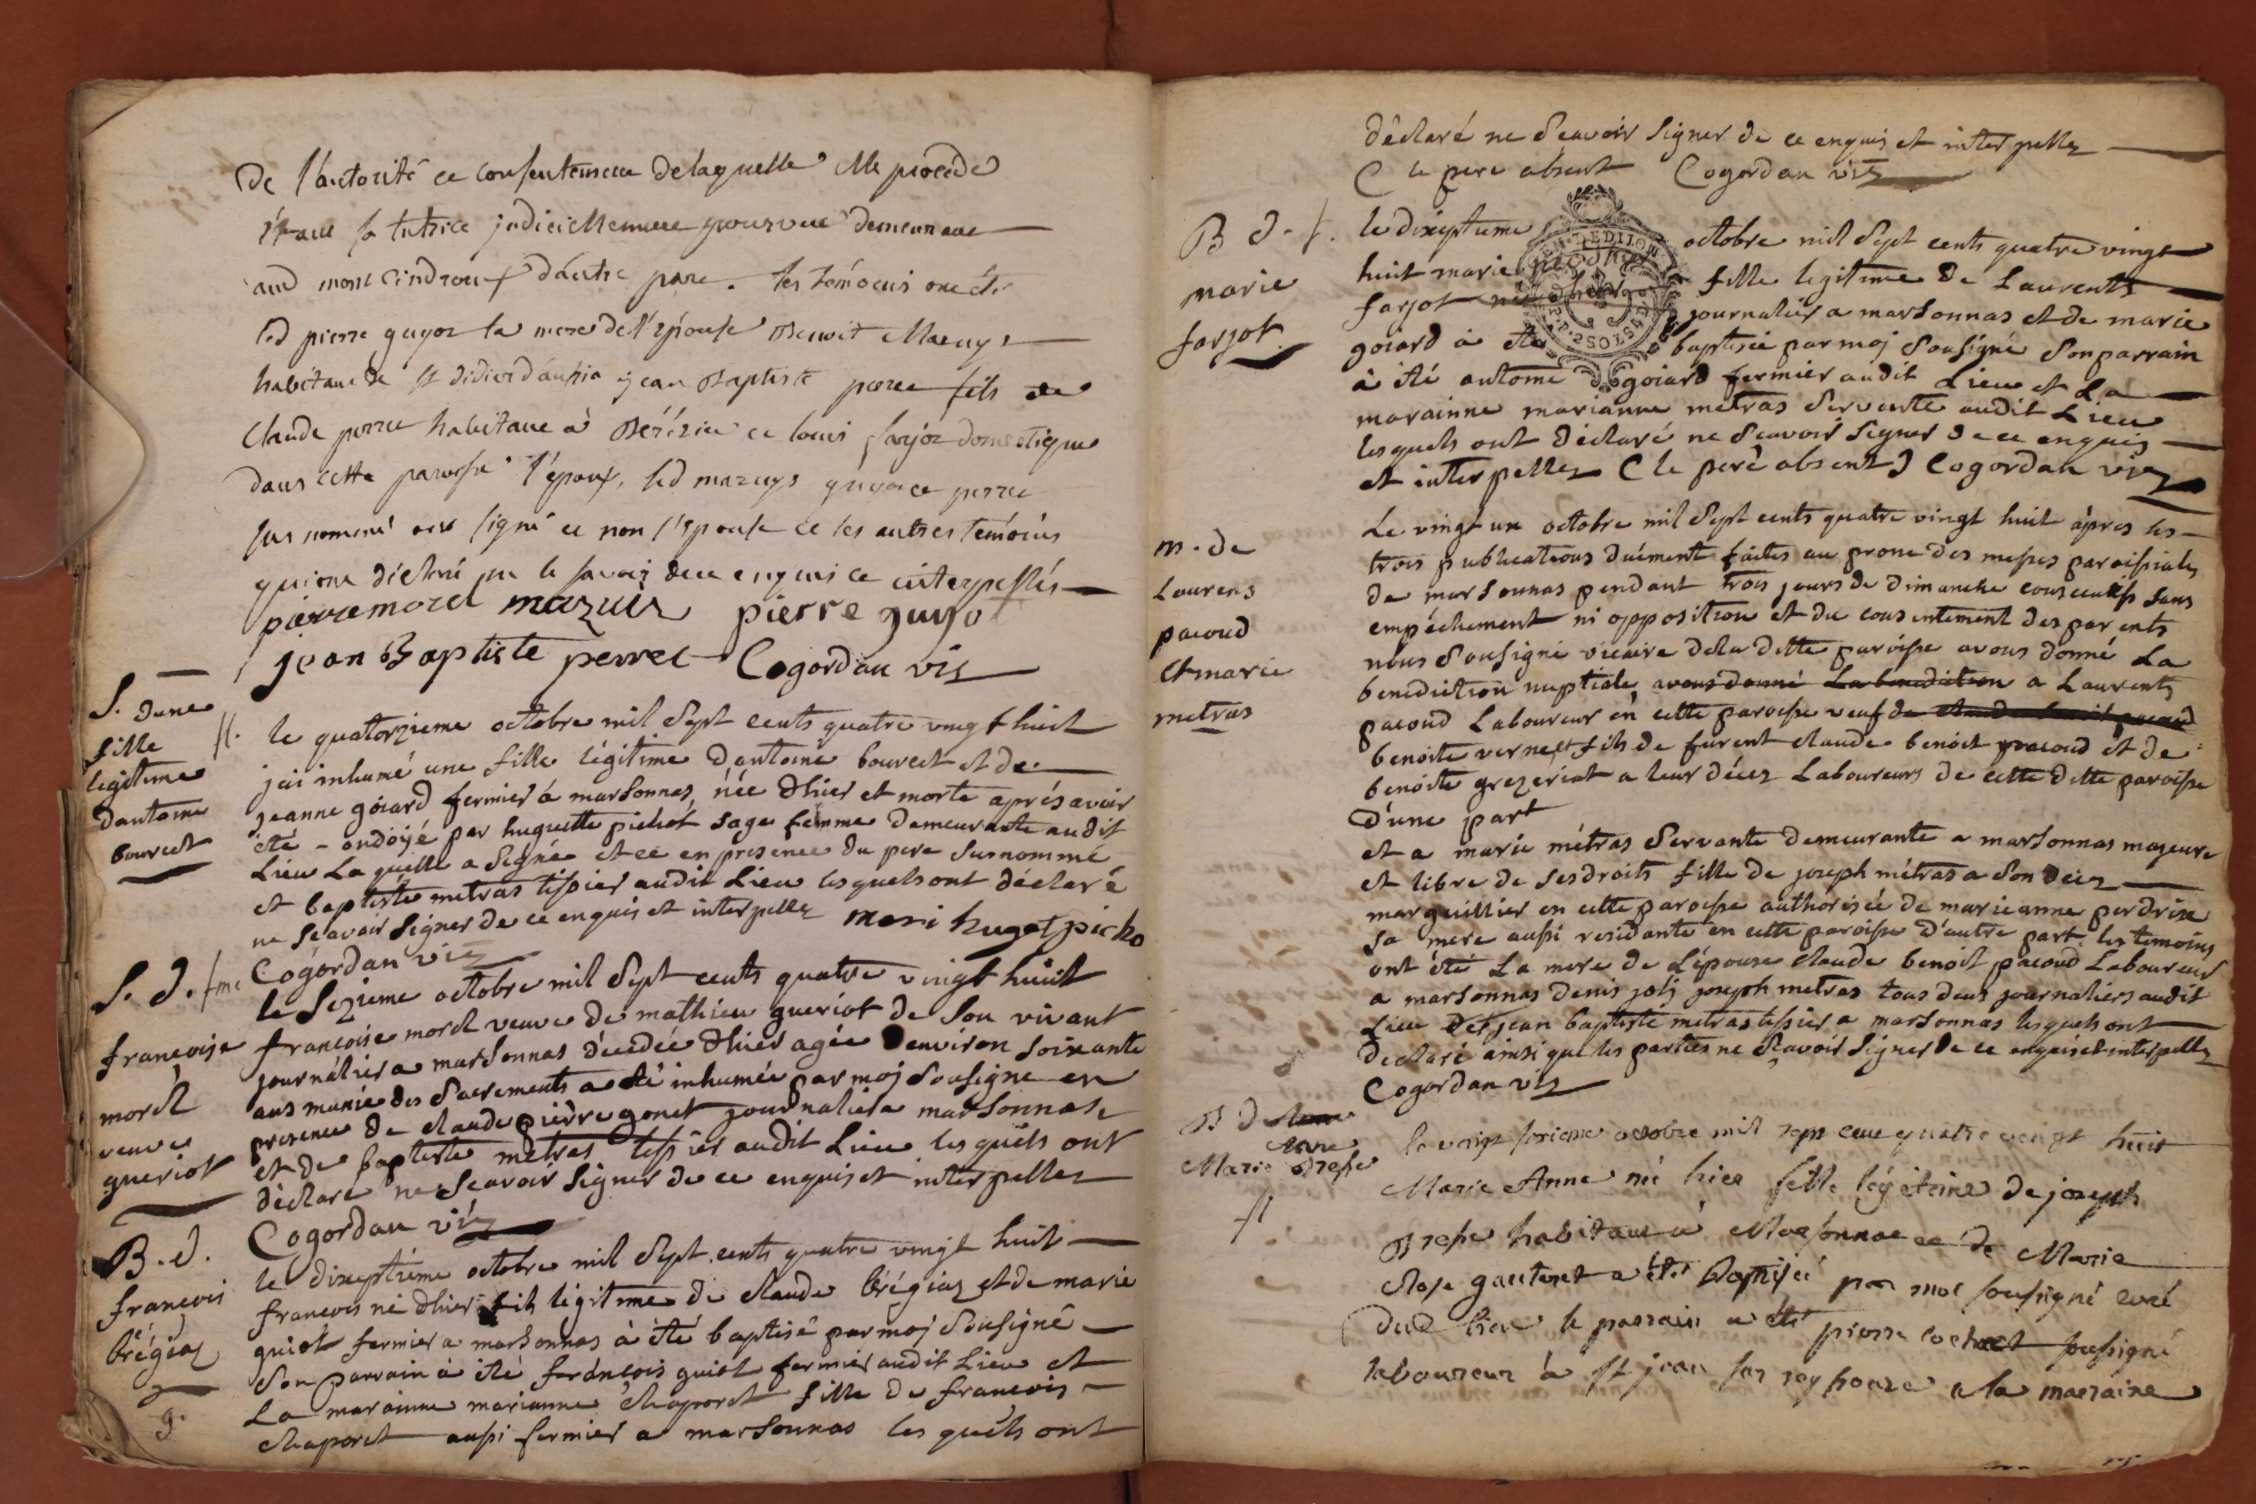 de l'autorité et consentement delaquelle elle procede
étant sa tutrice judiciellement pourvue demeurant
aud montcindroux d'autre part. les témoins ont été
led pierre guyot la mere de l'épouse Benoit Mazuys
habitant de st didier d'aussia jean Baptiste perret fils de
Claude perret habitant à Béréziat et louis farjot domestique
dans cette paroisse l'epoux, led mazuys guyot et perret
sus nommé ont signé et non l'épouse et les autres témoins
qui ont déclaré ne le savoir de ce enquis et interpellés
pierre morel mazuis pierre guyot
jean Baptiste perret Cogordan vic
S. dune
fille
legitime
dantoine
bouvret
le quatorzieme octobre mil Sept cents quatre vingt huit
jai inhumé une fille légitime d'antoine bouvret et de
jeanne goiard fermier á marsonnas, née d'hier et morte aprés avoir
été ondoÿé par huguette pichot sage femme demeurante audit
Lieu La quelle a Signée et ce en presence du pere Surnommé
et baptiste metras tissier audit Lieu les quels ont déclaré
ne Sçavoir Signer de ce enquis et interpellez mari huget picho
Cogordan vic
S. d. fme
francoise
morel
veuve
gueriot
le Sezieme octobre mil Sept cents quatre vingt huit
francoise morel veuve de mathieu gueriot de Son vivant
journálier a marsonnas décédée d'hier agée d'environ soixante
ans munie des Sacrements a été inhumée par moj Sousigne en
presence de claude pierre gonet journalier a marsonnas
et de baptiste metras tissier audit Lieu les quels ont
déclaré ne Scavoir Signer de ce enquis et interpellez
Cogordan vic
B. d.
francois
brégiaz
g.
le dixseptième octobre mil Sept cents quatre vingt huit
francois né d'hier fils légitime de Claude brégiaz et de marie
guiot fermier a marsonnas à été baptisé par moj Sousigné
Son parrain à été francois guiot fermier audit Lieu et
La marainne marianne chaporet fille de francois
chaporet aussi fermier a marsonnas les quels ont
déclaré ne Sçavoir Signer de ce enquis et interpellez
( le pere absent Cogordan vic
B d. f.
marie
farjot
le dixseptieme octobre mil Sept cents quatre vingt
huit marie née d'hier fille legitime de Laurents
farjot journalier a marsonnas et de marie
goiard à été baptisée par moj Sousigné Son parrain
à été antoine goiard fermier audit Lieu et La
marainne marianne metras Servante audit Lieu
lesquels ont déclaré ne Sçavoir Signer de ce enquis
et interpellez ( le pere absent ) Cogordan vic
m. de
Laurens
pacoud
et marie
metras
Le vingt un octobre mil Sept cents quatre vingt huit âpres les
trois publications duément faites au prone des messes paroissiales
de marsonnas pendant trois jours de dimanche consecutifs sans
empéchement ni opposition et du consentement des parents
nous Sousigné vicaire de la ditte paroisse avons donné La
benediction nuptiale, avons donné La benediction a Laurents
pacoud Laboureur en cette paroisse veuf de
benoite verne, et fils de furent claude benoit pacoud et de
benoite grezeriat a leur décez Laboureurs de cette ditte paroisse
D'une part
et a marie métras Servante demeurante a marsonnas majeure
et libre de ses droits fille de joseph métras a Son decez
marguillier en cette paroisse authorisée de marieanne perdrix
Sa mere aussi residante en cette paroisse d'autre part. les temoins
ont été La mere de L'épouse Claude benoit pacoud Laboureur
a marsonnas denis joly joseph metras tous deux journaliers audit
Lieu et jean baptiste metras tissier a marsonnas lesquels ont
declaré ainsi que les parties ne Sçavoir Signer de ce enquis et interpellez
Cogordan vic
B d
Marie Bresse
le vingt sixieme octobre mil sept cent quatre vingt huit
Marie Anne né hier fille légitime de joseph
Bresse habitant à Marsonnas et de Marie
Rose gauteret a été Baptisée par moi soussigné curé
dud lieu le parrain a été pierre cochet soussigné
laboureur à st jean sur reyssouze a la marraine